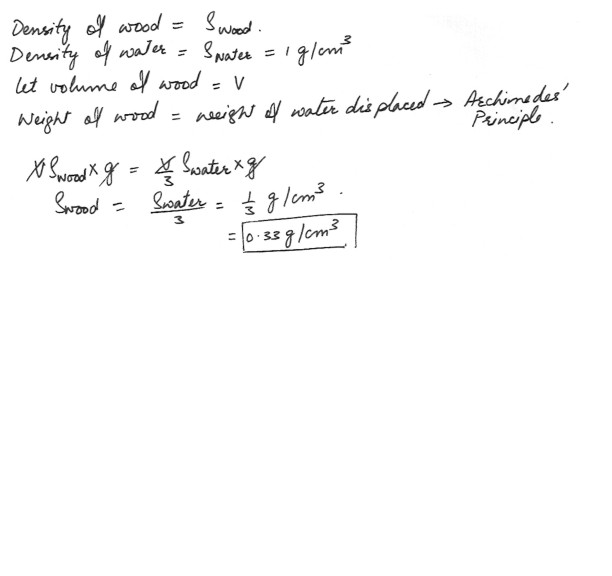 Density of wood = ρwood.
Density of water = ρwater = 1 g/cm³
let volume of wood = V
Weight of wood = weight of water displaced → Archimedes' Principle.
V ρwood × g = V/3 ρwater × g
ρwood = ρwater/3 = 1/3 g/cm³.
= 0.33 g/cm³